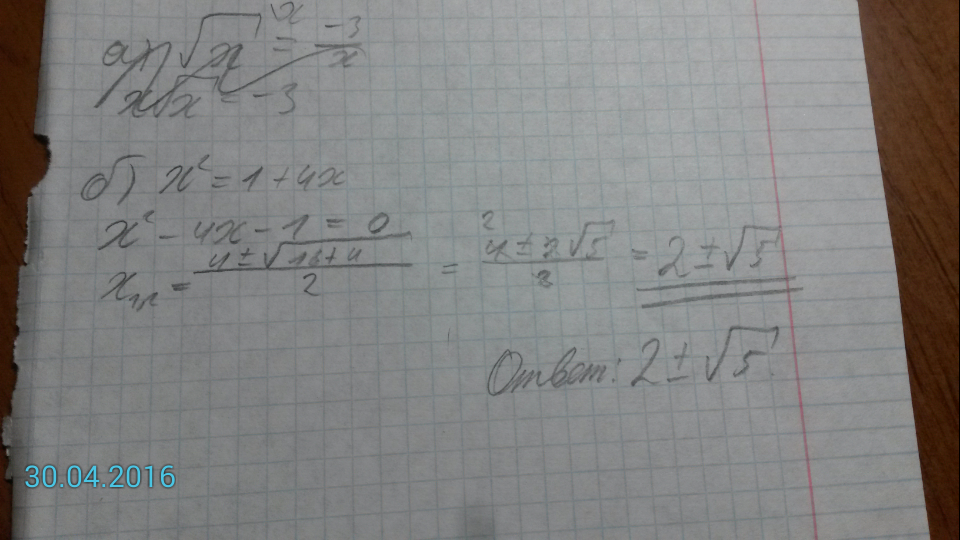 а) √x = -3/x
x√x = -3
б) x² = 1 + 4x
x² - 4x - 1 = 0
x₁,₂ = (4 ± √(16+4))/2 = (4 ± 2√5)/2 = 2 ± √5
Ответ: 2 ± √5.
30.04.2016